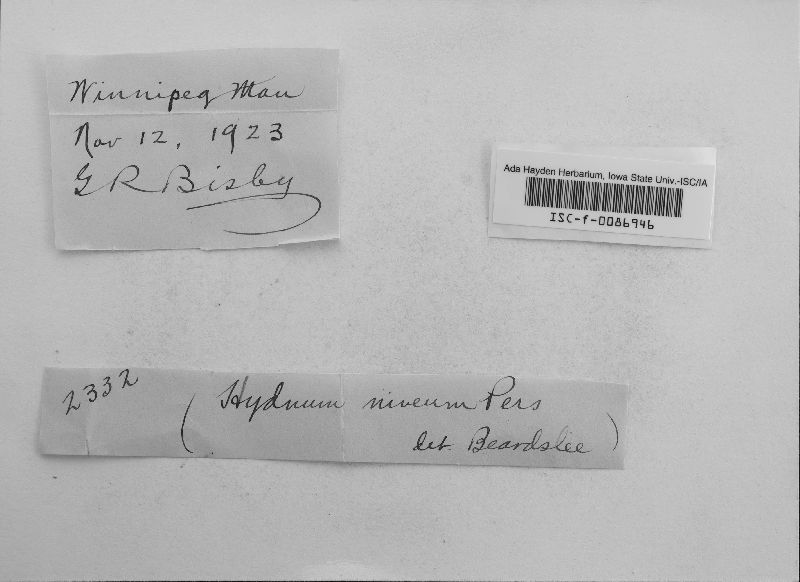 Winnipeg Man
Nov 12, 1923
G R Bisby
Ada Hayden Herbarium, Iowa State Univ.-ISC/IA
ISC-f-0086946
2332
(Hydnum niveum Pers
det. Beardslee)